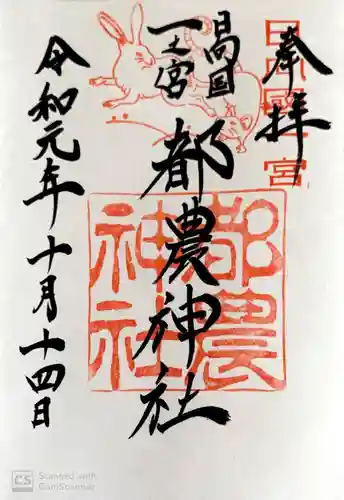 奉拝
日向国
一之宮
都農神社
令和元年十月十四日
日向國一宮
都農
神社
CS Scanned with
CamScanner